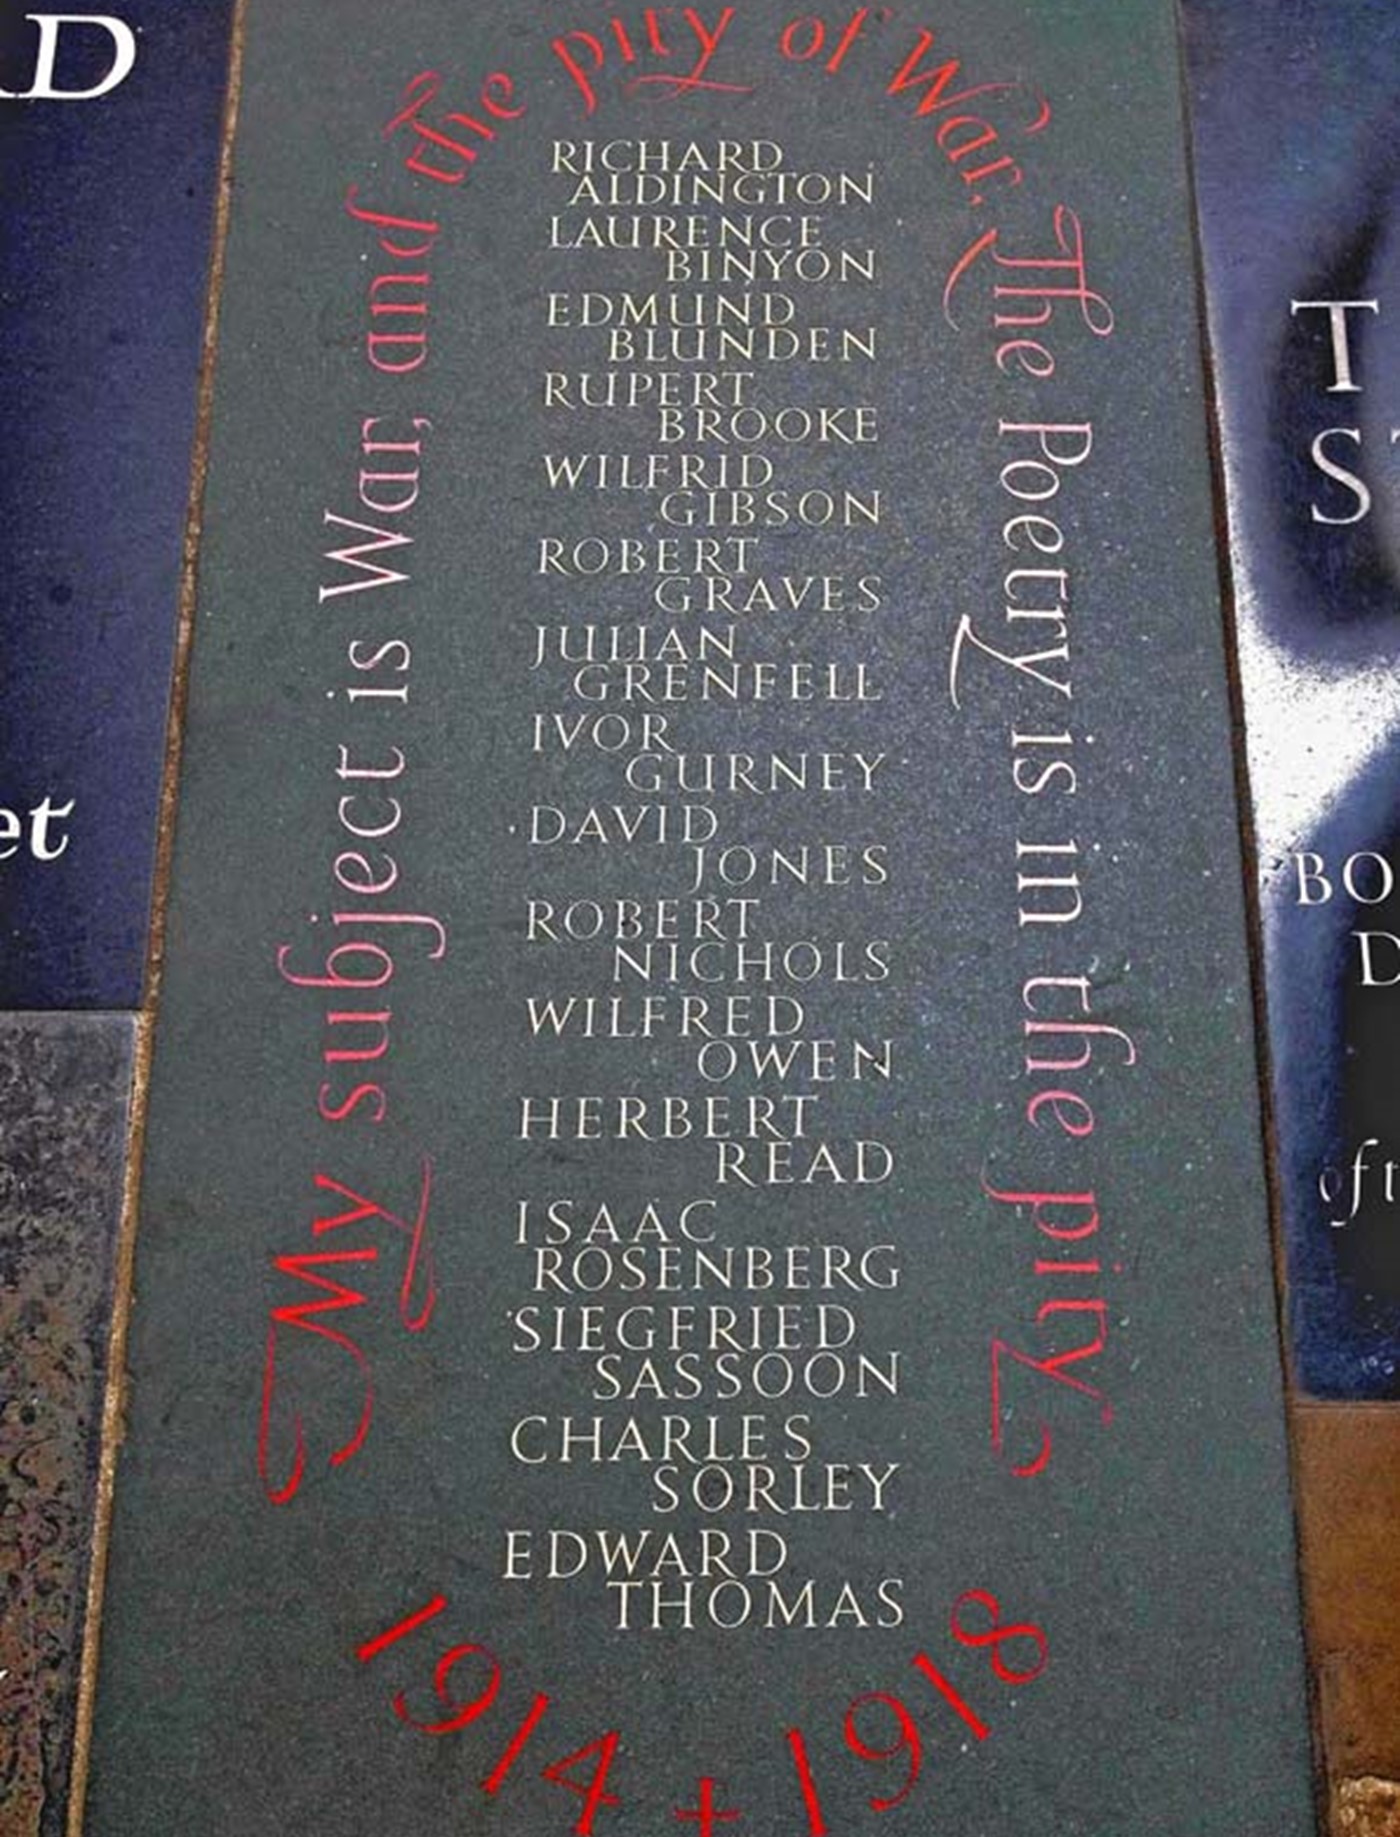 D
et
My subject is War, and the pity of War. The Poetry is in the pity.
RICHARD
ALDINGTON
LAURENCE
BINYON
EDMUND
BLUNDEN
RUPERT
BROOKE
WILFRID
GIBSON
ROBERT
GRAVES
JULIAN
GRENFELL
IVOR
GURNEY
DAVID
JONES
ROBERT
NICHOLS
WILFRED
OWEN
HERBERT
READ
ISAAC
ROSENBERG
SIEGFRIED
SASSOON
CHARLES
SORLEY
EDWARD
THOMAS
1914 + 1918
T
S
BO
D
of t